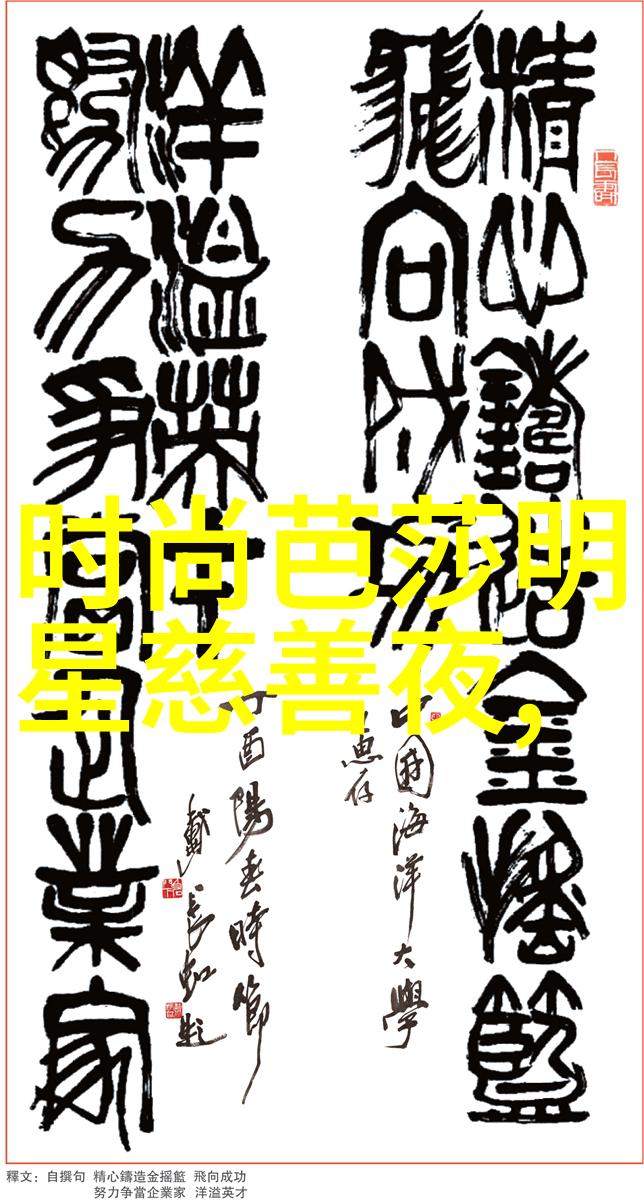 精心鑄造金搖籃
飛向成功
中國海洋大學
惠存
努力爭當企業家
洋溢英才
丁酉陽春時節
戴長虹題
时尚芭莎明
星慈善夜,
釋文：自撰句 精心鑄造金摇籃 飛向成功
努力争當企業家 洋溢英才